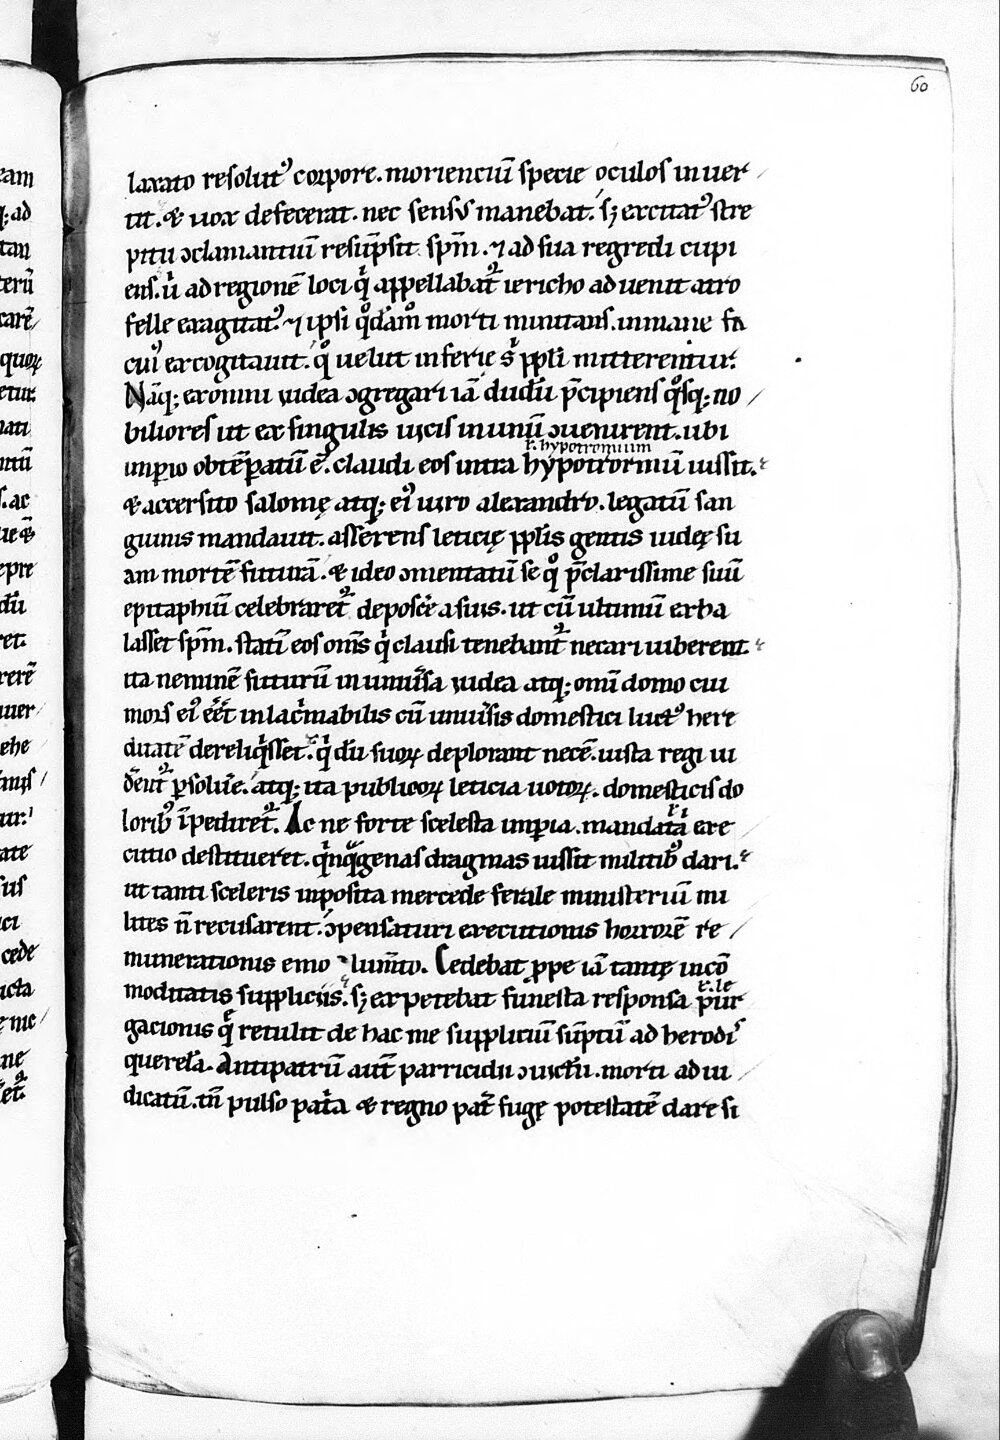 60
laxato resolut᷒ corpore. morienciū specie oculos inuer
tit. & uox defecerat. nec sensꝰ manebat. sꝫ excitatꝰ stre
pitu ꝯclamantiū resūpsit sp̄m. ⁊ ad sua regredi cupi
ens. ů ad regionē loci q̇ appellabat᷑ iericho aduenit atro
felle exagitatꝰ. ⁊ ipsi qͦdāmͦ morti minitans. inmane fa
cinꝰ excogitauit. qͦ uelut inferie sͥ ppl̄i mitterentur.
Nāq; ex omni iudea ꝯgregari iā dudū p̄cipiens qͦsq; no
biliores ut ex singulis uicis in unū ꝯuenirent. ubi
inꝑio obtēꝑatū ē. claudi eos intra hypotrormiū iussit.
ł hypotromium
& accersito salomę atq; eiꝰ uiro alexandro. legatū san
guinis mandauit. asserens leticię ppl̄is gentis iudeę su
am mortē futurā. & ideo ꝯmentatū se qͦ p̄clarissime suū
epitaphiū celebraret᷑ deposc̄e a suis. ut cū ultimū exha
lasset sp̄m. statī eos om̄s q̇ clausi tenebant᷑ necari iuberent.
ita neminē futurū in uniu̇sa iudea atq; omi domo cui
mors eiꝰ eēt inlac̓mabilis cū uniu̇sis domestici luctꝰ here
ditatē dereliq̇sset. q̇ dū suoꝝ deplorant necē. iusta regi ui
dēnt᷑ ꝑsolu̇e. atq; ita publicoꝝ leticia uotoꝝ. domesticis do
loribꝰ īpediret᷑. Ac ne forte scelesta inꝑia. mandata exe
cutio destitueret. q̇nq̇genas dragmas iussit militibꝰ dari.
ut tanti sceleris inposita mercede ferale ministeriū mi
lites n̄ recusarent. ꝯpensaturi executionis horrorē re
munerationis emolum̄to. Cedebat ꝓpe iā tantę incō
moditatis suppliciis. sꝫ expetebat funesta responsa pur
ł le
gacionis q̄ retulit de hac me suppliciū sūptū ad herodis
querela. Antipatrū aut̄ parricidii ꝯuictū. morti adiu
dicatū. tn̄ pulso pat̓a & regno pat̓ fugę potestatē dare si